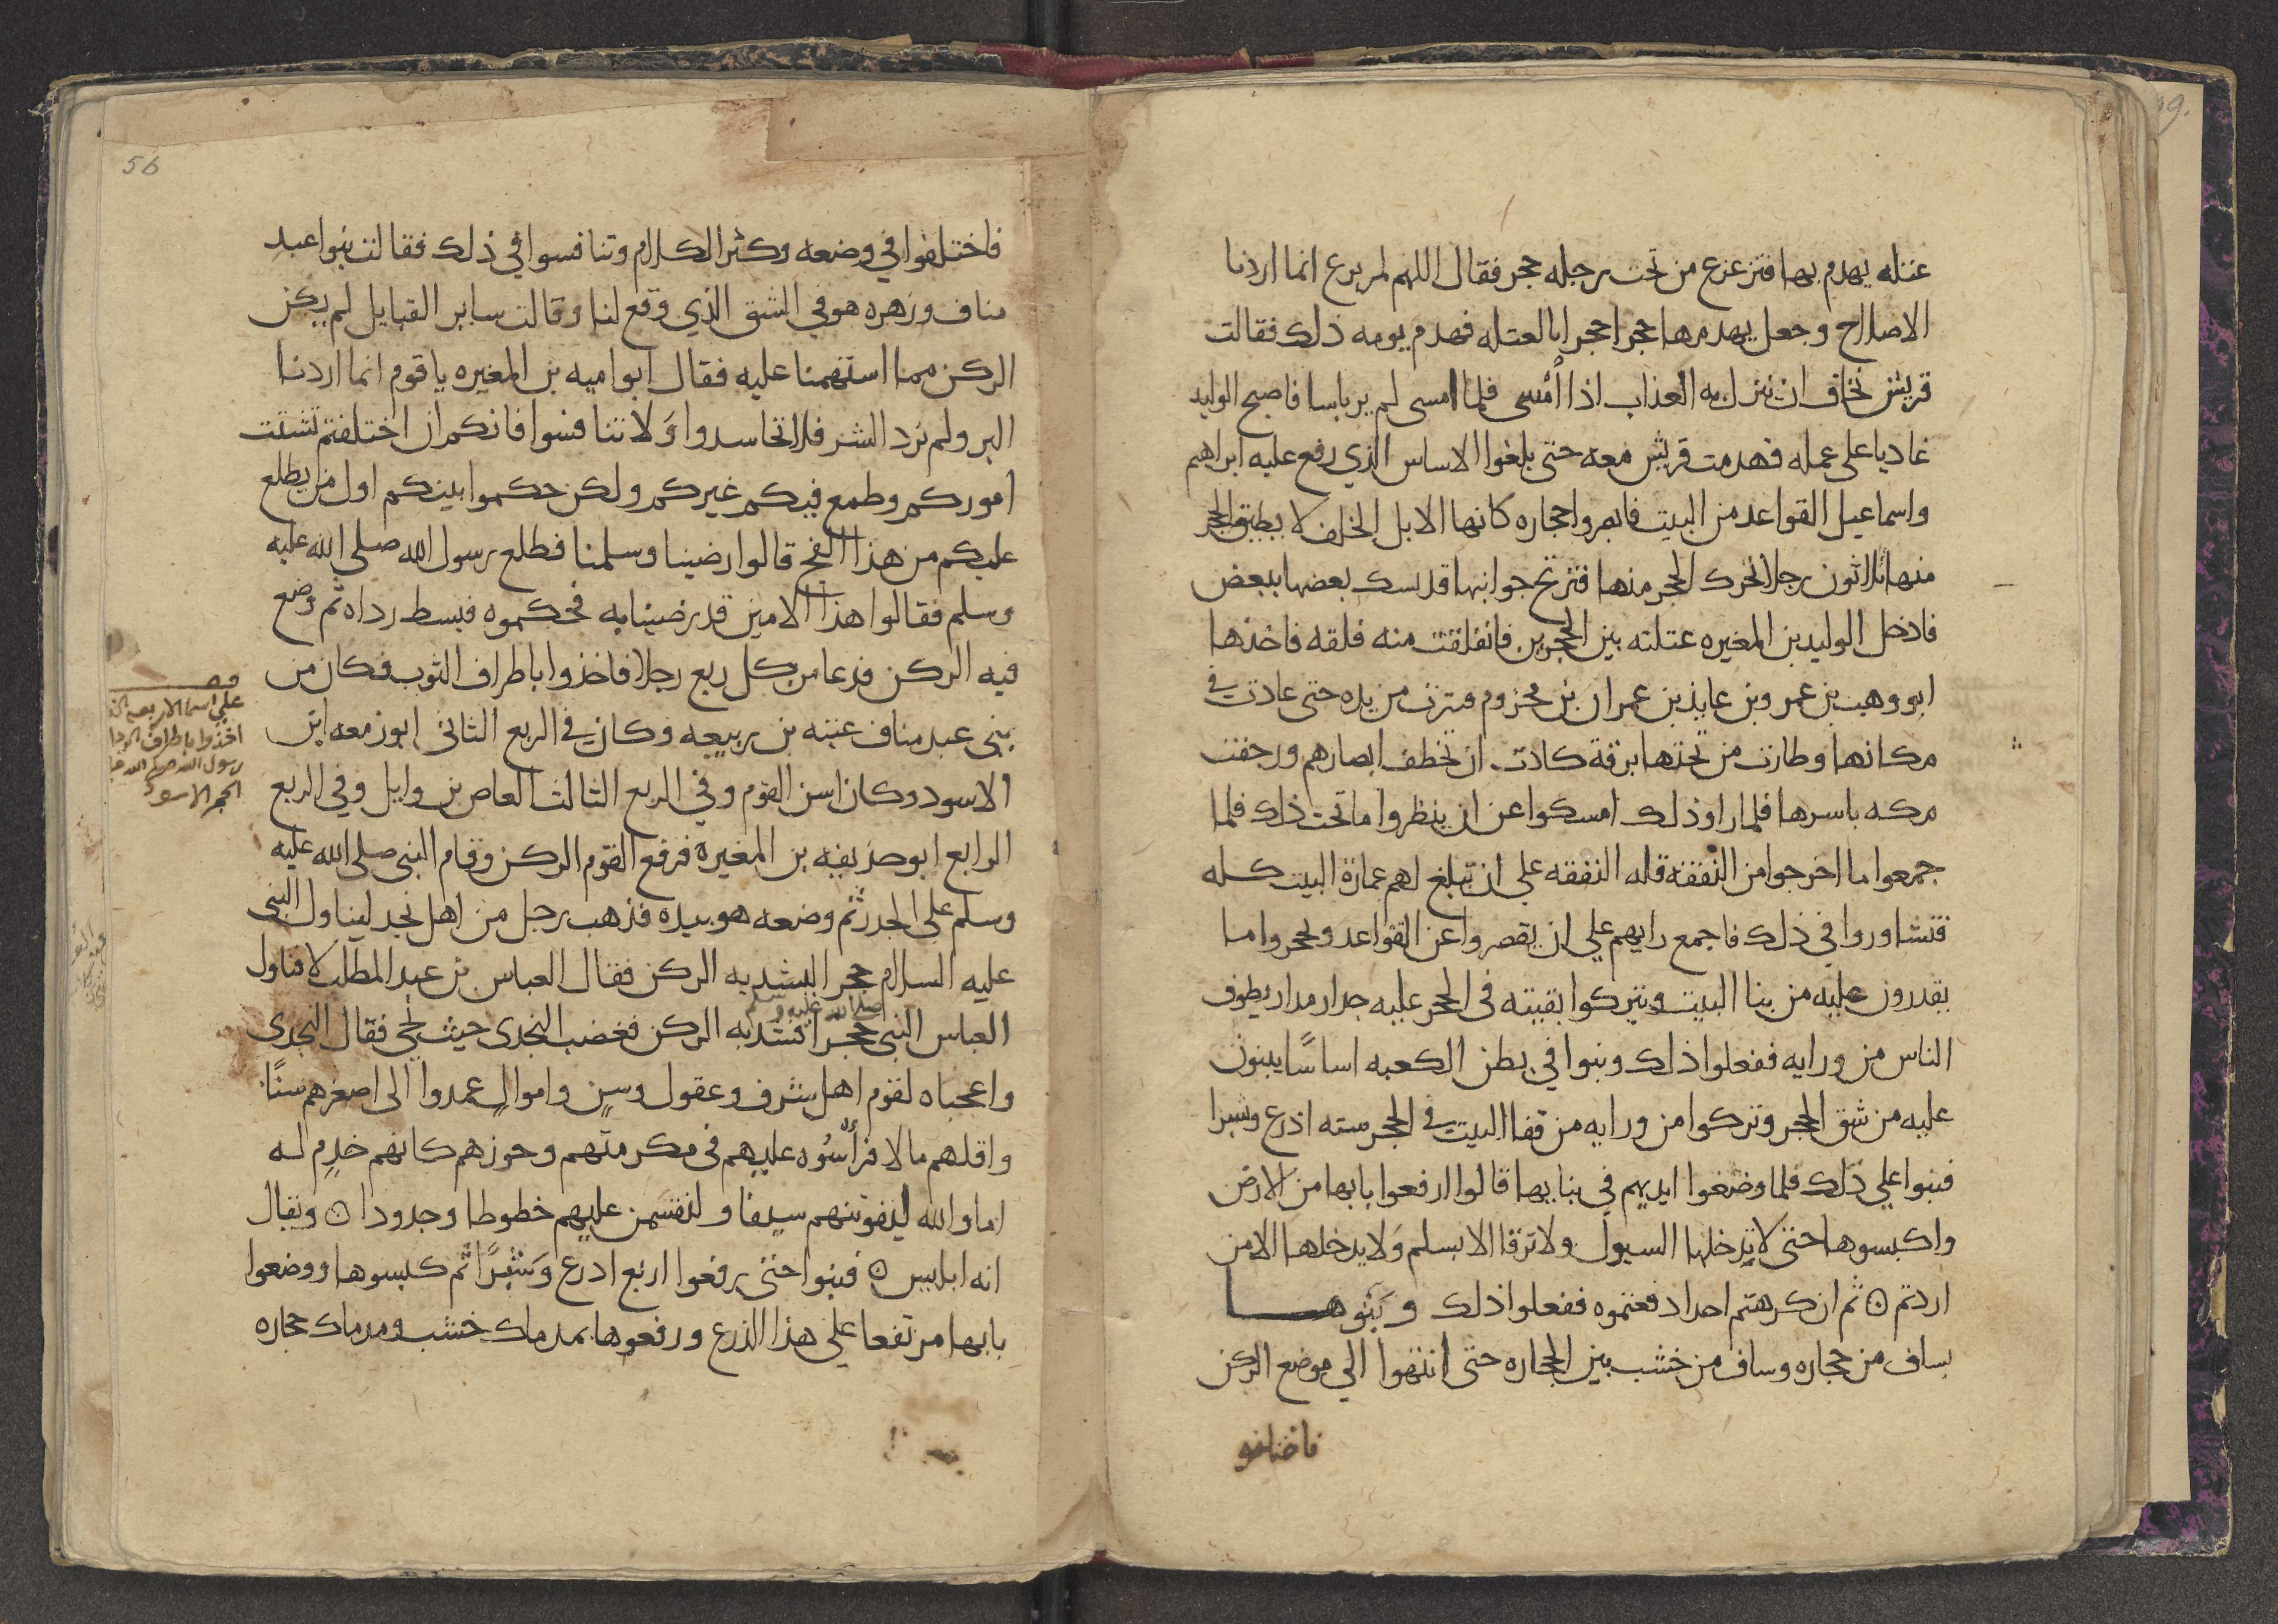 عتله يهدم بها فتزعزع من تحت رجله حجر فقال اللهم لم يرع انما اردنا
الاصلاح وجعل يهدمها حجرا حجرا بالعتله فهدم يومه ذلك فقالت
قريش نخاف ان ينزل به العذاب اذا أمسى فلما امسى لم ير باسا فاصبح الوليد
غاديا على عمله فهدمت قريش معه حتى بلغوا الاساس الذي رفع عليه ابراهيم
واسماعيل القواعد من البيت فابصروا حجاره كانها الابل الخلف لا يطيق الحجر
منها ثلاثون رجلا تحرك الحجر منها فترتج جوانبها قد تشبك بعضها ببعض
فادخل الوليد بن المغيره عتلته بين الحجرين فانفلقت منه فلقه فاخذها
ابو وهب بن عمرو بن عايذ بن عمران بن مخزوم فنزت من يده حتى عادت في
مكانها وطارت من تحتها برقة كادت ان تخطف ابصارهم ورجفت
مكه باسرها فلما راو ذلك امسكوا عن ان ينظروا ما تحت ذلك فلما
جمعوا ما اخرجوا من النفقة قله النفقه علي ان تبلغ لهم عمارة البيت كله
فتشاوروا في ذلك فاجمع رايهم علي ان يقصروا عن القواعد ويحجروا ما
يقدرون عليه من بنا البيت ويتركوا بقيته في الحجر عليه جدار مدار يطوف
الناس من ورايه ففعلوا ذلك وبنوا في بطن الكعبه اساسًا يبنون
عليه من شق الحجر وتركوا من ورايه من قفا البيت في الحجر سته اذرع وشبرا
فبنوا علي ذلك فلما وضعوا ايديهم في بنايها قالوا ارفعوا بابها من الارض
واكبسوها حتى لا يدخلها السيول ولا ترقا الا بسلم ولا يدخلها الا من
اردتم ۞ ثم ان كرهتم احدا دفعتموه ففعلوا ذلك وبنوها
بساف من حجاره وساف من خشب بين الحجاره حتى انتهوا الي موضع الركن
فاختلفو
56
فاختلفوا في وضعه وكثر الكلام وتنافسوا في ذلك فقالت بنوا عبد
مناف وزهره هو في الشق الذي وقع لنا وقالت ساير القبايل لم يكن
الركن مما استهمنا عليه فقال ابوا ميه بن المغيره يا قوم انما اردنا
البر ولم نرد الشر فلا تحاسدوا وَلا تنافسوا فانكم ان اختلفتم تشتت
اموركم وطمع فيكم غيركم ولكن حكموا بينكم اول من يطلع
عليكم من هذا الفج قالوا رضينا وسلمنا فطلع رسول الله صلى الله عليه
وسلم فقالوا هذا الامين قد رضينا به فحكموه فبسط رداه ثم وضع
فيه الركن فدعا من كل ربع رجلا فاخذوا باطراف الثوب فكان من
بني عبد مناف عتبه بن ربيعه وكان في الربع الثاني ابو زمعه ابن
الاسود وكان اسن القوم وفي الربع الثالث العاص بن وايل وفي الربع
الرابع ابو حذيفه بن المغيرة فرفع القوم الركن وقام النبي صلى الله عليه
وسلم على الجدر ثم وضعه هو بيده فذهب رجل من اهل نجد ليناول النبي
عليه السلام حجرا ليشد به الركن فقال العباس بن عبد المطلب لا فناول
صلى الله عليه وسلم
العباس النبي حجرا فشد به الركن فغضب النجدي حيث نحي فقال النجدي
واعجباه لقوم اهل شرف وعقول وسن واموال عمدوا الى اصغرهم سنًا
واقلهم مالا فرأسُوه عليهم في مكرمتهم وحوزهم كانهم خدم له
اما والله ليفوتنهم سبقا وليقسمن عليهم خطوطا وجدودا ۞ ويقال
انه ابليس ۞ فبنوا حتى رفعوا اربع اذرع وَشبرًا ثم كبسوها ووضعوا
بابها مرتفعا علي هذا الذرع ورفعوها بمدماك خشب ومدماك حجاره
علي اسما الاربعه الذ
اخذوا باطراف الردا
رسول الله
الحجر الاسود